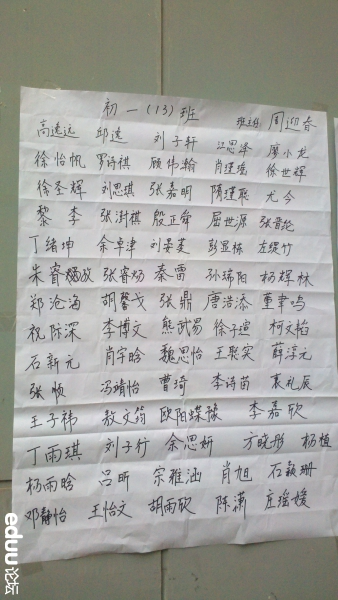 初一(13)班 班主任 周迎春
高逸远 邱逸 刘子轩 江思泽 廖小龙
徐怡帆 罗诗祺 顾伟瀚 肖瑾瑶 徐世辉
徐圣辉 刘思琪 张嘉明 隋建聪 尤今
黎李 张澍祺 殷正舜 屈世源 张晋纶
丁绪坤 余卓津 刘晏菱 彭显栋 左缇竹
朱睿 张睿炀 秦雷 孙瑞阳 杨辉林
郑沧海 胡馨戈 张鼎 唐浩添 董聿鸣
祝陈深 李博文 熊武易 徐子迦 柯文怡
石新元 肖宇晗 魏思怡 王聪实 薛淳元
张顺 冯靖怡 曹琦 李诗苗 袁礼辰
王子祎 敖文筠 欧阳蝶豫 李嘉欣
丁雨琪 刘子行 余思妍 方晓彤 杨植
杨雨晗 吕昕 宗雅涵 肖旭 石颖珊
邓静怡 王怡文 胡雨欣 陈潇 庄瑶媛
eduu论坛